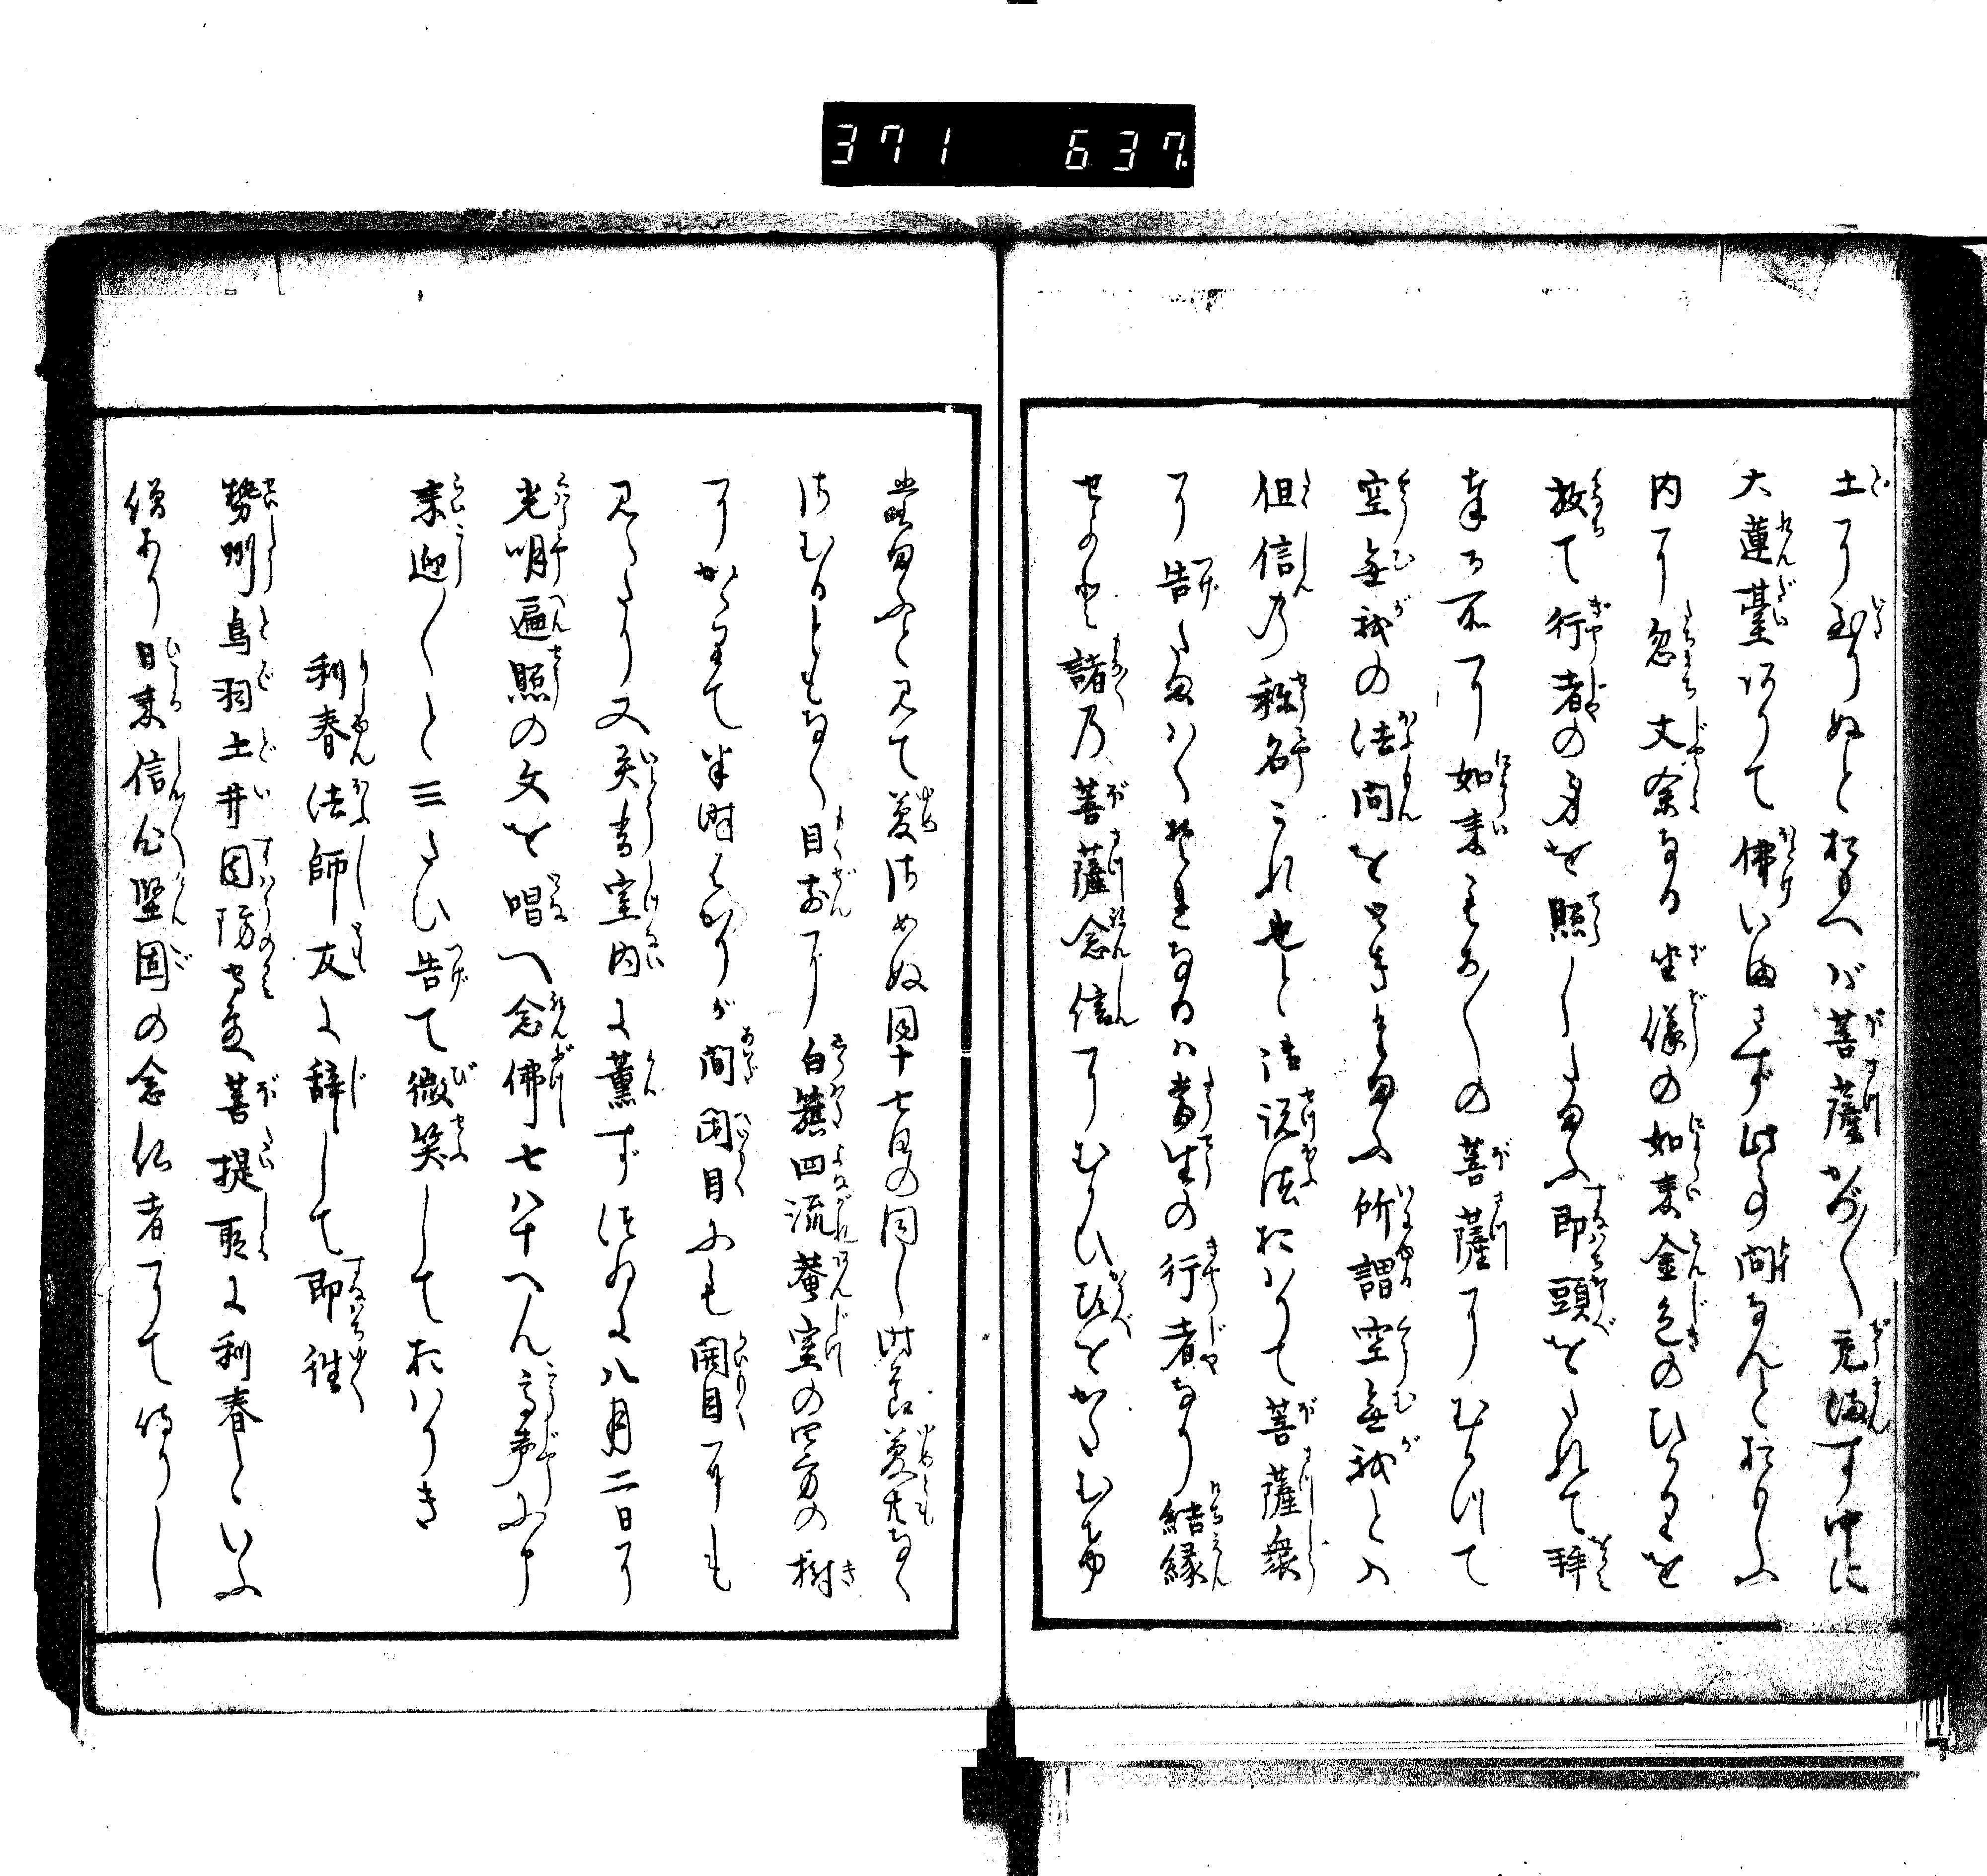 371 637
土に到りぬとおもへバ菩薩がた〴〵充満す中に
大蓮臺ありて佛いまさず此の間なんとおもふ
内に忽丈余なる坐像の如来金色のひかりを
放て行者の身を照したまふ即頭をたれて拝
奉る所に如来もろ〳〵の菩薩にむかつて
空無我の法門をときたまふ所謂空無我とハ
但信の称名これ也と説法おハりて菩薩衆
に告たまハくそれなるハ當生の行者なり結縁
せよと諸乃菩薩念信にむかひ頭をかたむけ
たまふと見て夢さめぬ同十七日の同し時分夢ともなく
さむるともなく目前に白籏四流菴室の四方の樹
にかゝりて半時ばかりが間閉目にも開目にも
見へたり又異香室内に薫ずつゐに八月二日に
光明遍照の文を唱へ念佛七八十へん高声に申
来迎〳〵と三たび告て微笑しておハりき
利春法師友に辞して即往
勢州鳥羽土井周防守菩提所に利春といふ
僧あり日来信心堅固の念仏者にて侍りし